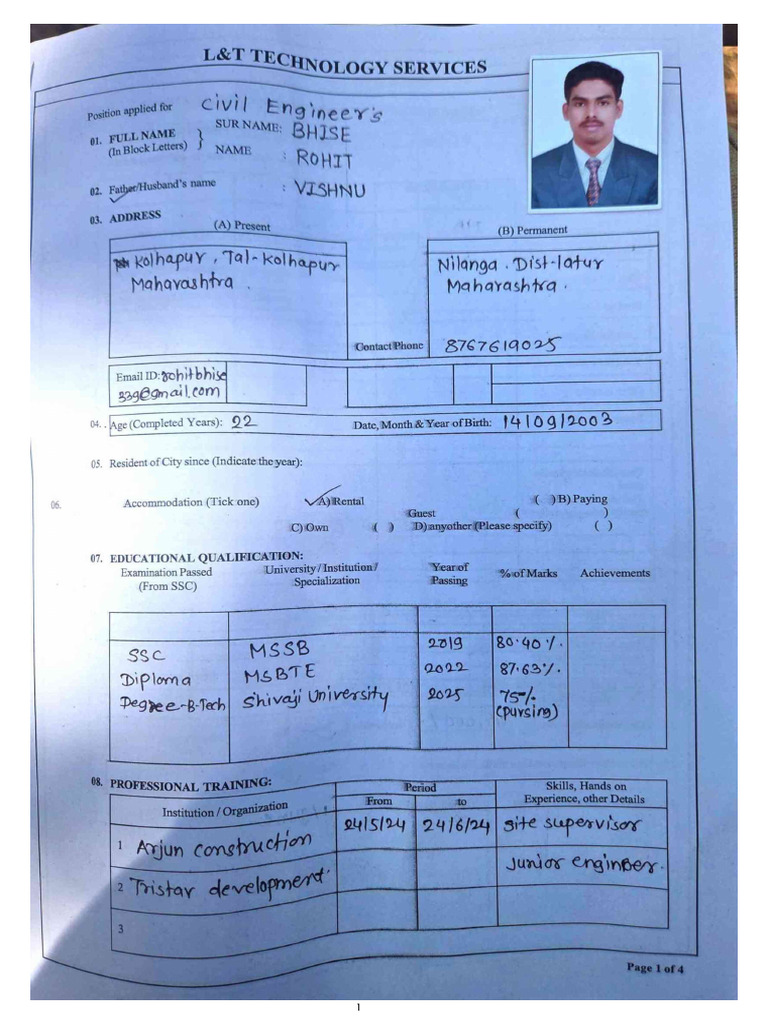 L&T TECHNOLOGY SERVICES
Position applied for Civil Engineer's
01. FULL NAME (In Block Letters) SUR NAME: BHISE
NAME : ROHIT
02. Father/Husband's name : VISHNU
03. ADDRESS
(A) Present (B) Permanent
Kolhapur, Tal-Kolhapur Nilanga. Dist-latur
Maharashtra. Maharashtra.
Contact Phone 8767619025
Email ID: rohitbhise
339@gmail.com
04. . Age (Completed Years): 22 Date, Month & Year of Birth: 14/09/2003
05. Resident of City since (Indicate the year):
06. Accommodation (Tick one) A) Rental ( ) B) Paying
Guest ( )
C) Own ( ) D) anyother (Please specify) ( )
07. EDUCATIONAL QUALIFICATION:
Examination Passed University / Institution / Year of % of Marks Achievements
(From SSC) Specialization Passing
SSC MSSB 2019 80.40%.
Diploma MSBTE 2022 87.63%.
Degree-B-Tech Shivaji University 2025 75%
(pursing)
08. PROFESSIONAL TRAINING:
Institution / Organization Period Skills, Hands on
From to Experience, other Details
1 Arjun construction 24/5/24 24/6/24 site supervisor
2 Tristar development. Junior enginber.
3
Page 1 of 4
1